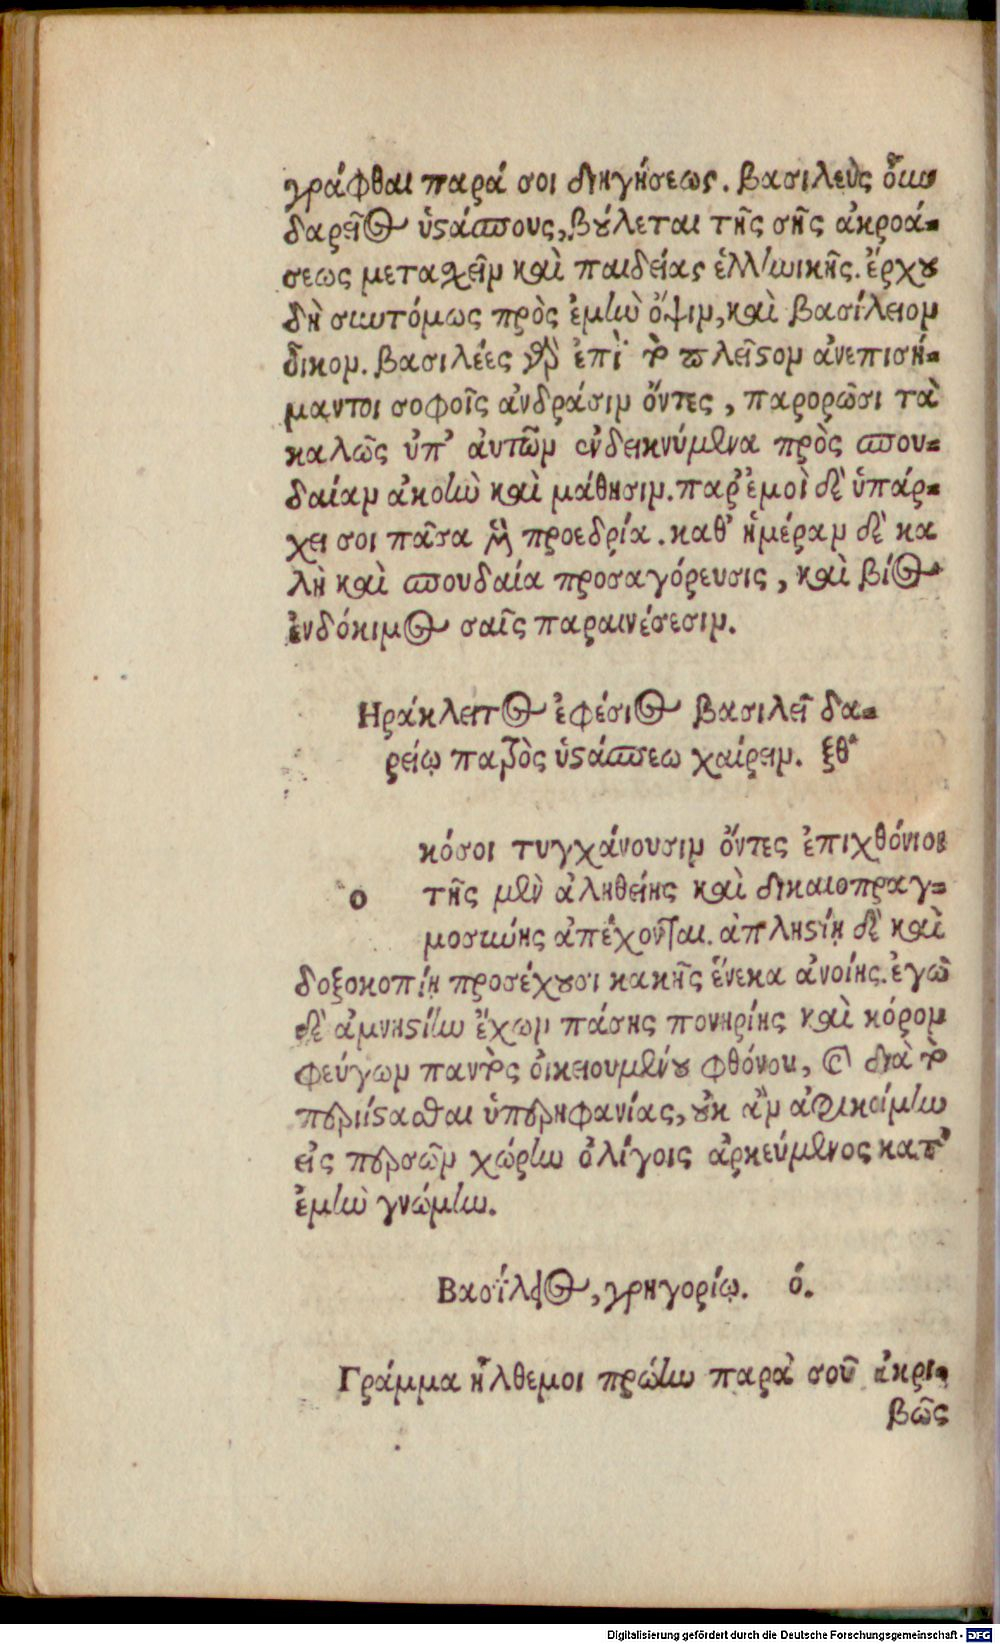 γράφθαι παρά σοι διηγήσεως. βασιλεὺς οὖν
δαρεῖος ὑστάσπους, βούλεται τῆς σῆς ἀκροά-
σεως μετασχεῖν καὶ παιδείας ἑλληνικῆς. ἔρχου
δὴ συντόμως πρὸς ἐμὴν ὄψιν, καὶ βασίλειον
οἶκον. βασιλέες γὰρ ἐπὶ τὸ πλεῖστον ἀνεπισή-
μαντοι σοφοῖς ἀνδράσιν ὄντες, παρορῶσι τὰ
καλῶς ὑπ' ἀυτῶν ἐνδεικνύμενα πρὸς σπου-
δαίαν ἀκοὴν καὶ μάθησιν. παρ' ἐμοὶ δὲ ὑπάρ-
χει σοι πᾶσα μὲν προεδρία. καθ' ἡμέραν δὲ κα
λὴ καὶ σπουδαία προσαγόρευσις, καὶ βίος
ἐνδόκιμος σαῖς παραινέσεσιν.
Ηράκλειτος ἐφέσιος βασιλεῖ δα-
ρείῳ πατρὸς ὑστάσπεω χαίρειν. ξθ
ο
κόσοι τυγχάνουσιν ὄντες ἐπιχθόνιοι
τῆς μὲν ἀληθείης καὶ δικαιοπραγ-
μοσύνης ἀπέχονται. ἀπληστίη δὲ καὶ
δοξοκοπίη προσέχουσι κακῆς ἕνεκα ἀνοίης. ἐγὼ
δὲ ἀμνηστίην ἔχων πάσης πονηρίης καὶ κόρον
φεύγων παντὸς ὀικειουμένου φθόνου, καὶ διὰ τὸ
περιίστασθαι ὑπερηφανίας, οὐκ ἂν ἀφικοίμην
εἰς περσῶν χώρην ὀλίγοις ἀρκεύμενος κατ'
ἐμὴν γνώμην.
Βασίλειος, γρηγορίῳ. ό.
Γράμμα ἦλθεμοι πρώην παρὰ σοῦ ἀκρι-
βῶς
Digitalisierung gefördert durch die Deutsche Forschungsgemeinschaft - DFG